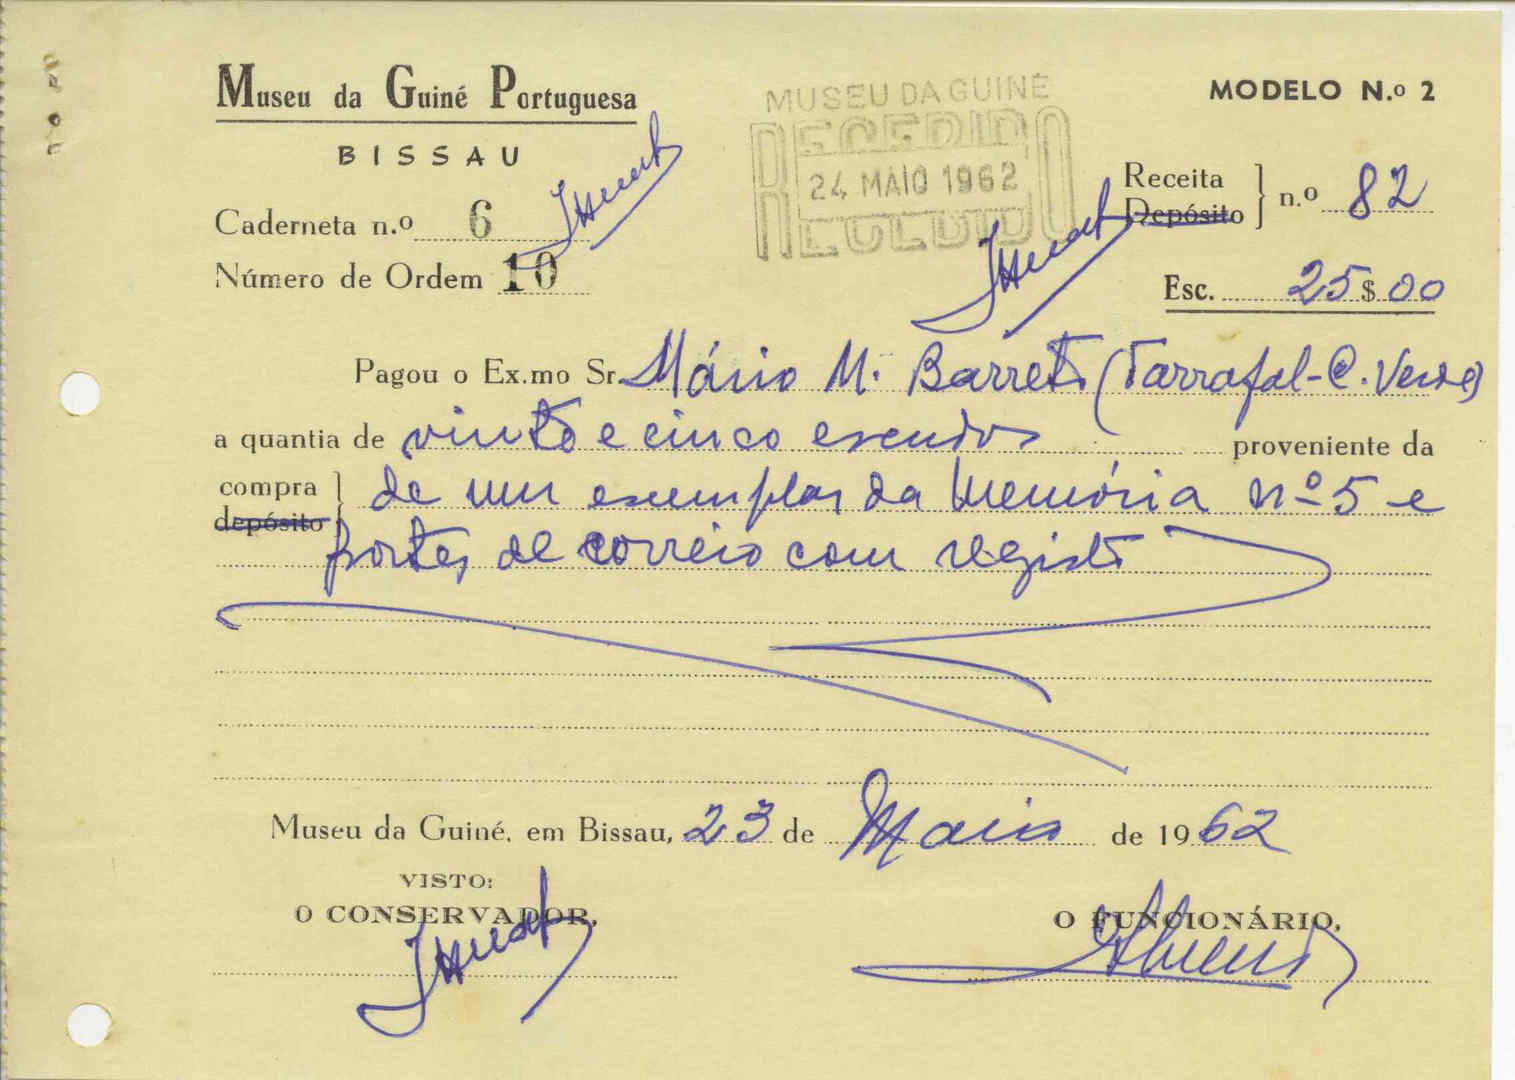 Museu da Guiné Portuguesa
BISSAU
MUSEU DA GUINÉ
RECEBIDO
24 MAIO 1962
RECEBIDO
MODELO N.º 2
Caderneta n.º 6
Número de Ordem 10
Receita
Depósito } n.º 82
Esc. 25$00
Pagou o Ex.mo Sr. Mário M. Barreto (Tarrafal-C. Verde)
a quantia de vinte e cinco escudos proveniente da
compra } de um exemplar da Memória nº 5 e
depósito
portes de correio com registo
Museu da Guiné, em Bissau, 23 de Maio de 1962
VISTO:
O CONSERVADOR,
O FUNCIONÁRIO,